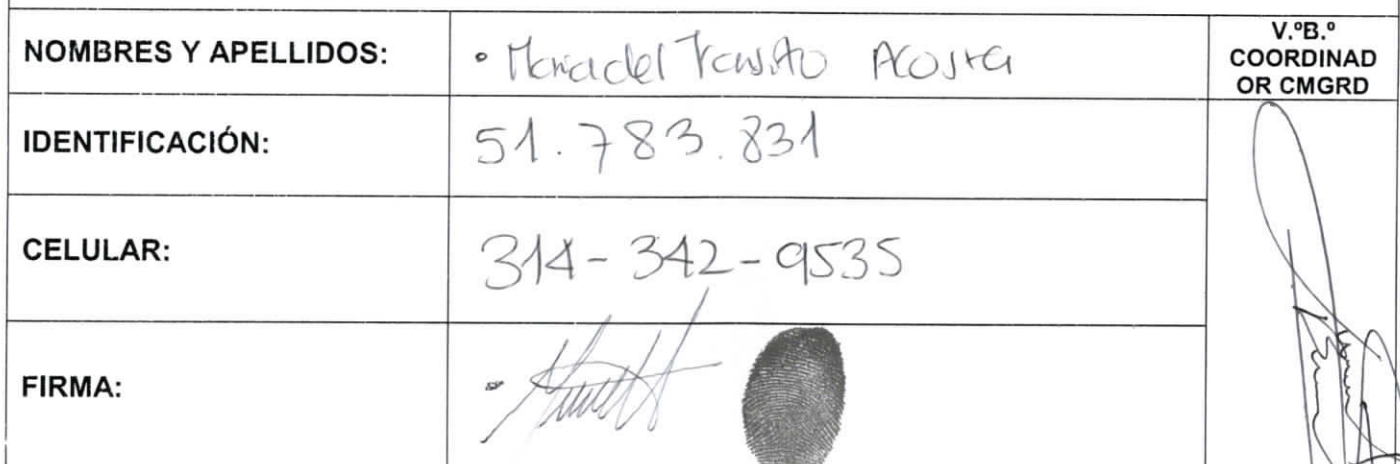 NOMBRES Y APELLIDOS: Maria del Transito Acosta
V.ºB.º
COORDINAD
OR CMGRD
IDENTIFICACIÓN: 51.783.831
CELULAR: 314-342-9535
FIRMA: